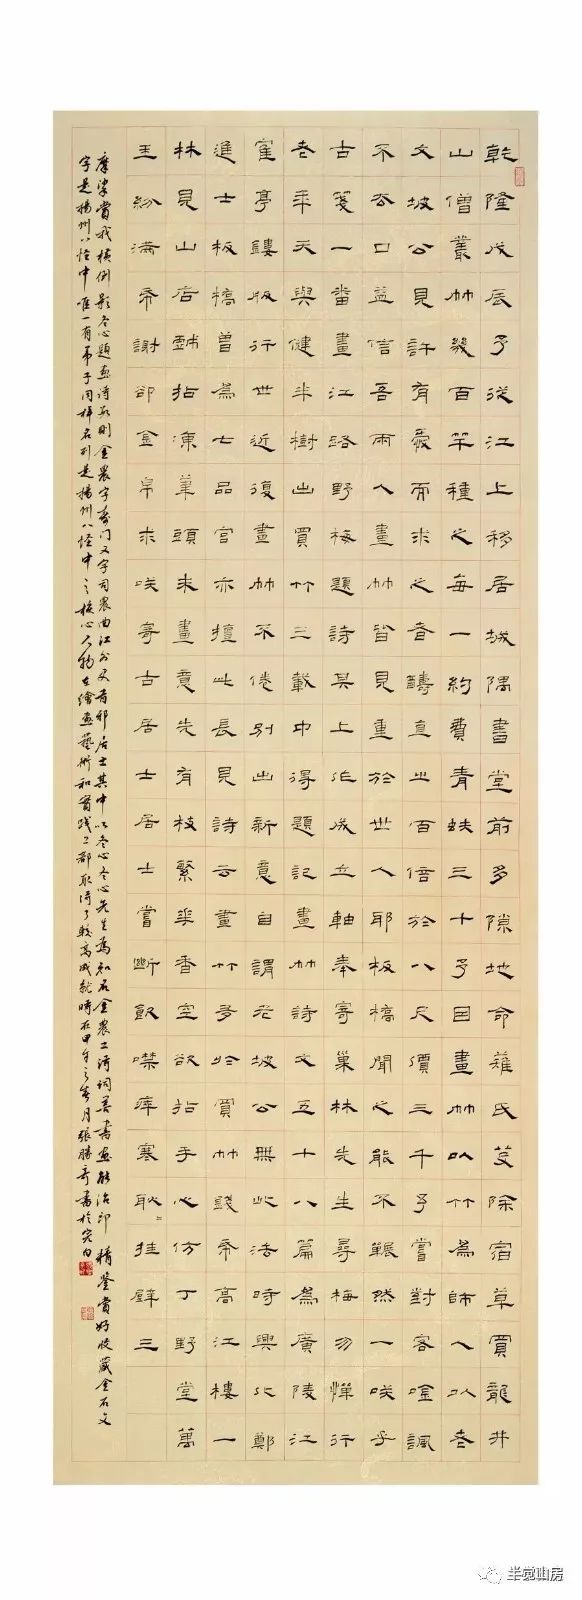 乾隆戊辰予從江上移居城隅書堂前多隙地命薙氏芟除宿草買龍井
山僧叢竹幾百竿種之每一約費青蚨三十予因畫竹以竹為師人以老
文坡公見許有愛而求之者酬直之百倍於八尺價三千予嘗對客唫諷
不去口益信吾兩人畫竹皆見重於世人耶板橋聞之能不囅然一咲乎
古箋一番畫江路野梅題詩其上作成立軸奉寄巢林先生尋梅勿憚行
老年天與健半樹出買竹三載中得題記畫竹詩文五十八篇為廣陵江
寉亭鏤版行世近復畫竹不倦別出新意自謂老坡公無此法時興化鄭
進士板橋曾為七品官亦擅此長見詩云畫竹多於買竹錢帋高江樓一
林見山店酤拈凍筆頭未畫意先有枝繁花香室欲拈手心仿丁野堂萬
玉紛滿帋謝卻金帛求咲寄古居士居士嘗斷飲噤痒寒耿挂壁三
摩挲賞我橫倒影冬心題畫詩數則金農字壽門又字司農曲江外史昔邪居士其中以冬心冬心先生為知名金農工詩詞善書畫能治印精鑒賞好收藏金石文
字是揚州八怪中唯一有弟子同樣名列是揚州八怪中之核心人物在繪畫藝術和實踐上都取得了較高成就時在甲午之春月張勝奇書於
半觉山房